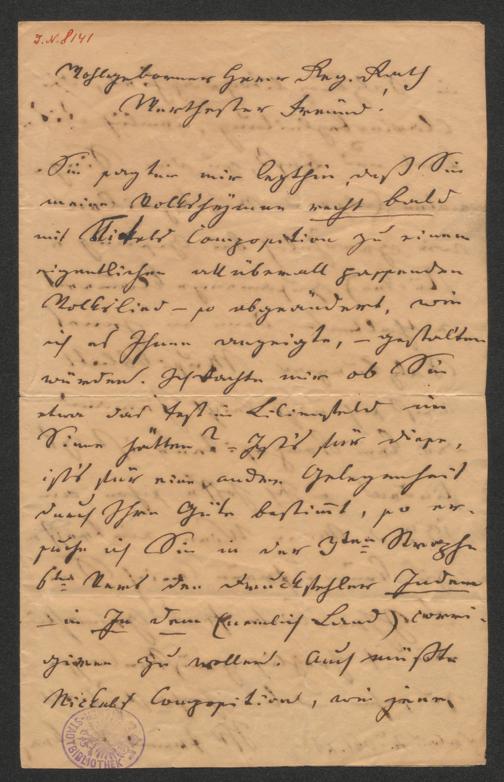 J.N. 8141
Wohlgeborner Herr Reg. Rath
Werthester Freund!
Sie sagten mir letzthin, daß Sie
meine Volkshymne recht bald
mit Nickels Composition zu einem
eigentlichen all überall passenden
Volkslied – so abgeändert, wie
ich es Ihnen anzeigte, – gestalten
würden. Ich dachte mir ob Sie
etwa das Fest in Lilienfeld im
Sinne hätten? – Ist's für diese,
ist's für eine andere Gelegenheit
durch Ihre Güte bestimmt, so er-
suche ich Sie in der 3ten Strophe
6ter Vers den Druckfehler Indem
– in In dem (nemlich Land) corri-
giren zu wollen. Auch müßte
Nickels Composition, wie jene
BIBLIOTHEK